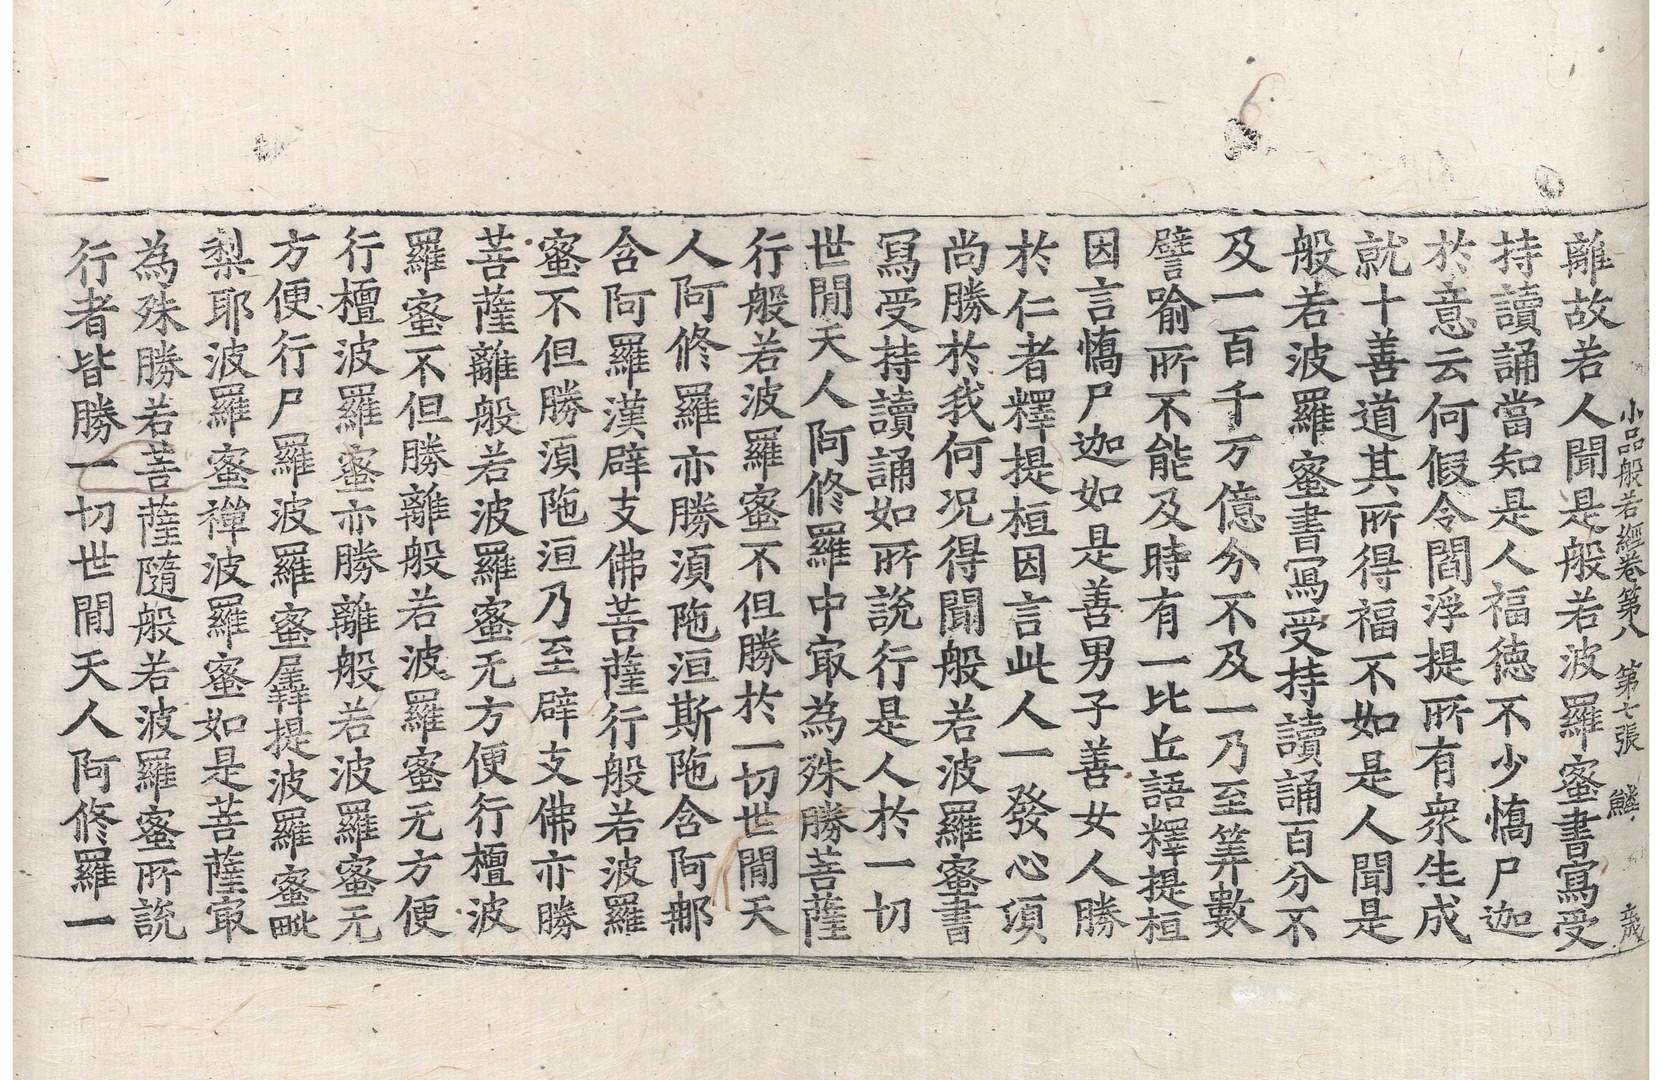 小品般若經卷第八 第七張 鱗
離故若人聞是般若波羅蜜書寫受
持讀誦當知是人福德不少憍尸迦
於意云何假令閻浮提所有衆生成
就十善道其所得福不如是人聞是
般若波羅蜜書寫受持讀誦百分不
及一百千万億分不及一乃至筭數
譬喻所不能及時有一比丘語釋提桓
因言憍尸迦如是善男子善女人勝
於仁者釋提桓因言此人一發心湏
尚勝於我何況得聞般若波羅蜜書
寫受持讀誦如所說行是人於一切
世閒天人阿修羅中㝡為殊勝菩薩
行般若波羅蜜不但勝於一切世閒天
人阿修羅亦勝湏陁洹斯陁含阿郍
含阿羅漢辟支佛菩薩行般若波羅
蜜不但勝湏陁洹乃至辟支佛亦勝
菩薩離般若波羅蜜无方便行檀波
羅蜜不但勝離般若波羅蜜无方便
行檀波羅蜜亦勝離般若波羅蜜无
方便行尸羅波羅蜜羼提波羅蜜毗
梨耶波羅蜜禪波羅蜜如是菩薩㝡
為殊勝若菩薩隨般若波羅蜜所說
行者皆勝一切世閒天人阿修羅一